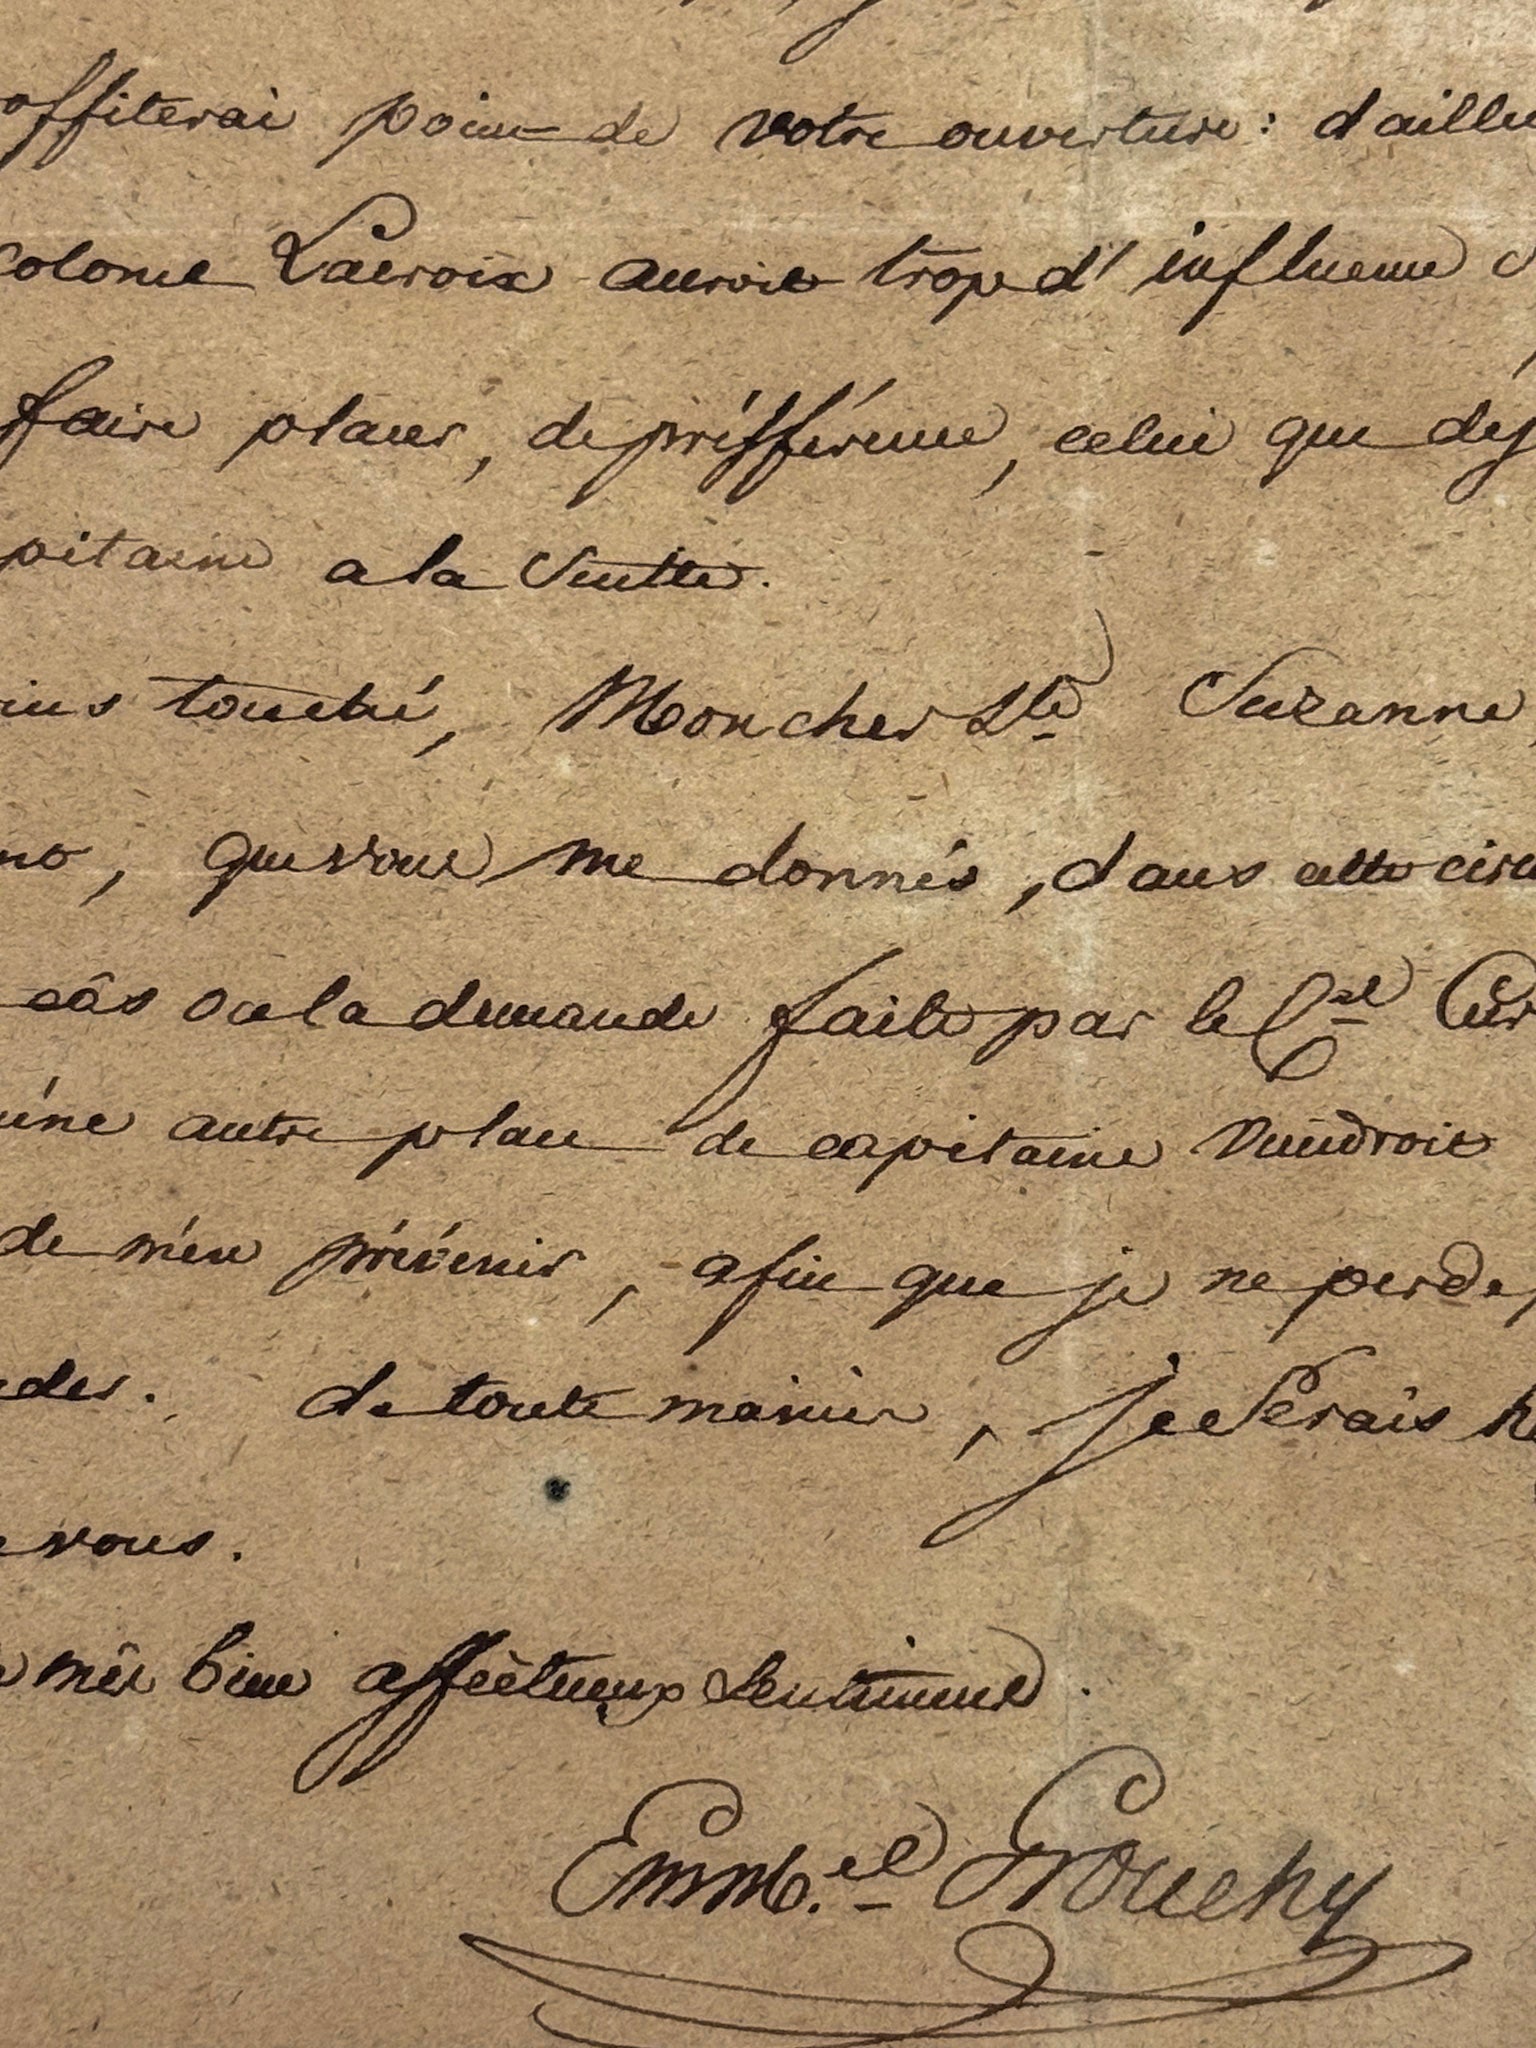 offiterai point de votre ouverture : d'ailleu
colonel Lacroix auroit trop d'influence
faire placer, de préfférence, celui que déj
pitaine a la suitte.
touché, Mon cher Ste Suzanne,
que vous me donnés, dans cette circ
câs ou la demande faite par le Cel Cur
une autre place de capitaine viendroit
de m'en prévenir, afin que je ne perde p
de toute maniere, je serais h
vous.
mes bien affectueux sentimens.
Emmel. Grouchy